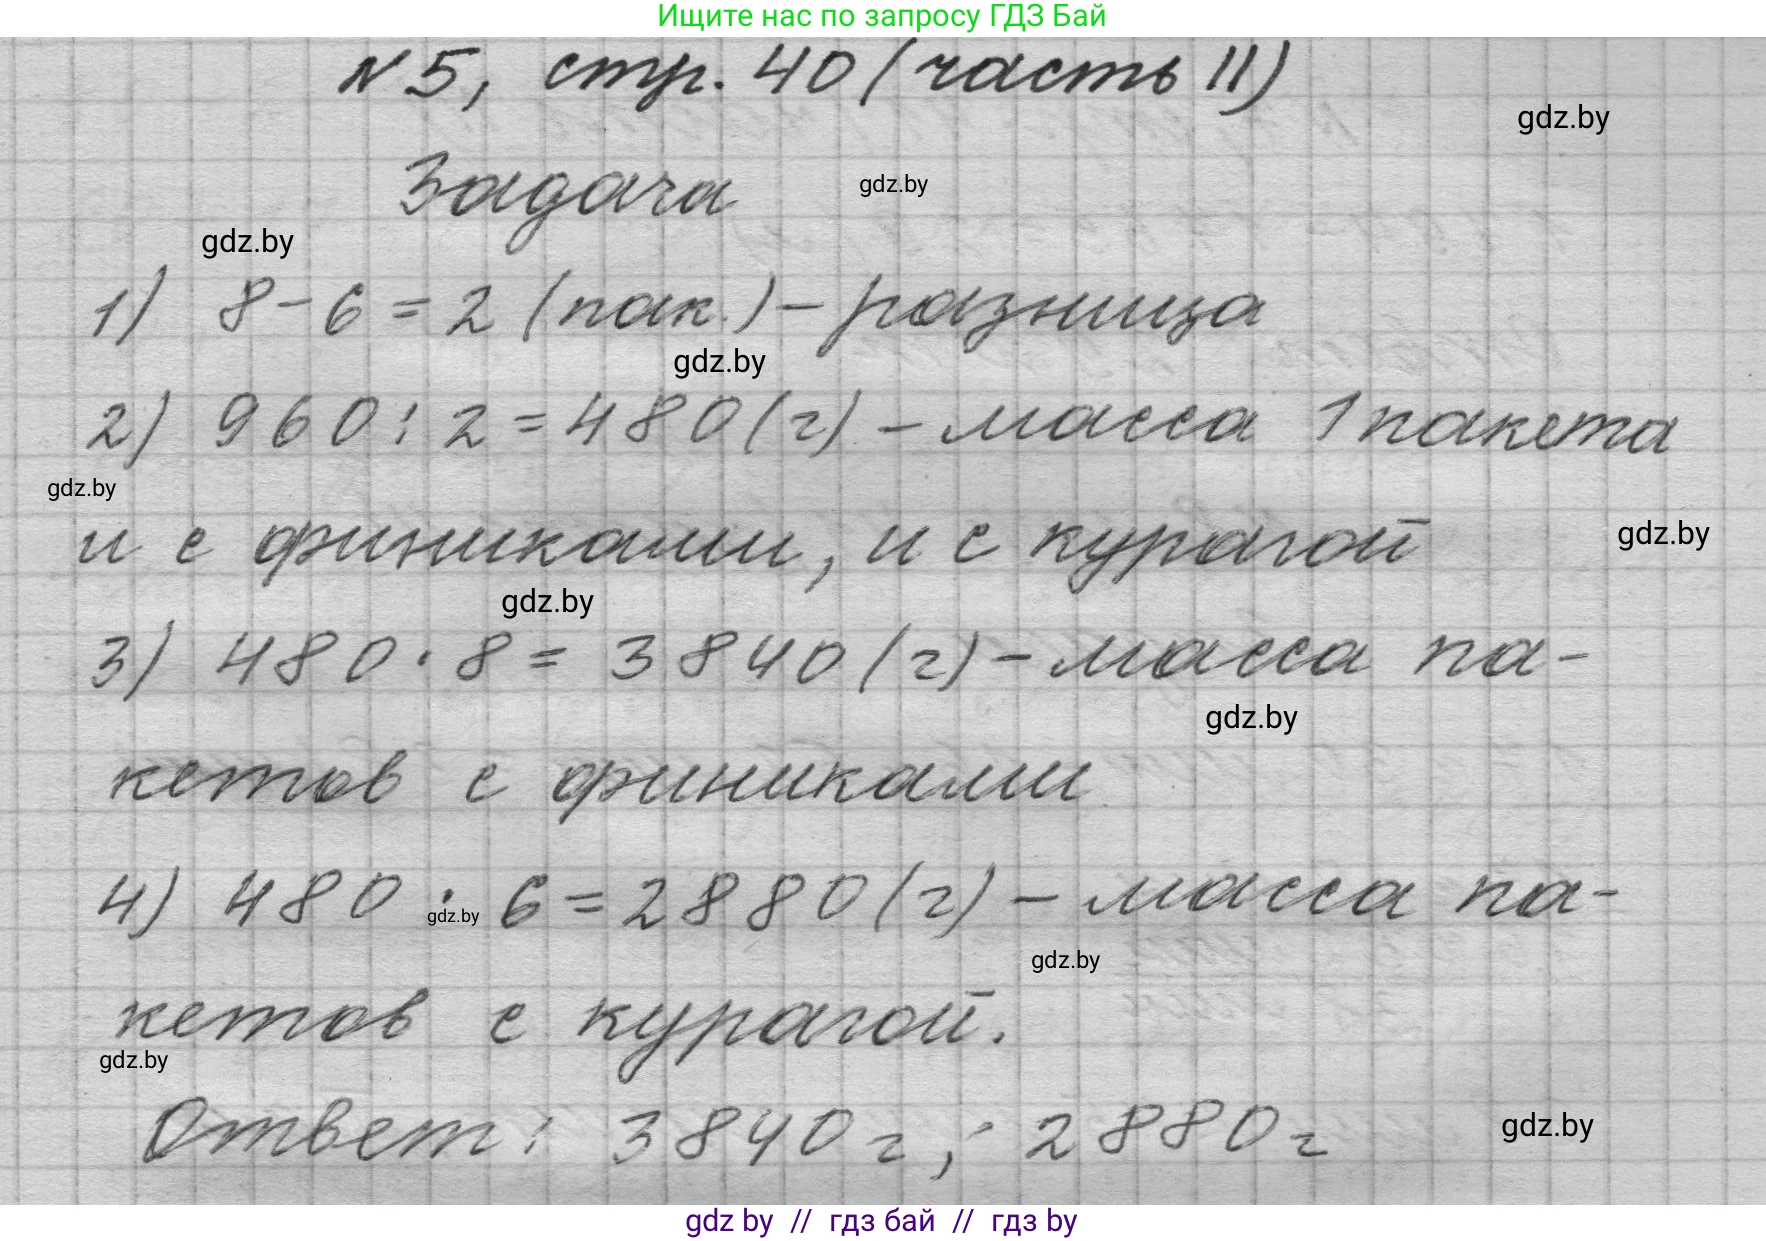 Ищите нас по запросу ГДЗ Бай
№5, стр. 40 (часть II)
gdz.by
Задача
gdz.by
gdz.by
1) 8-6=2 (пак.) - разница
gdz.by
2) 960:2=480(г) - масса 1 пакета
gdz.by
и с финиками, и с курагой
gdz.by
gdz.by
3) 480·8= 3840(г) - масса па-
gdz.by
кетов с финиками
4) 480·6=2880(г) - масса па-
gdz.by
gdz.by
кетов с курагой.
gdz.by
Ответ: 3840г; 2880г
gdz.by
gdz by // гдз бай // гдз by